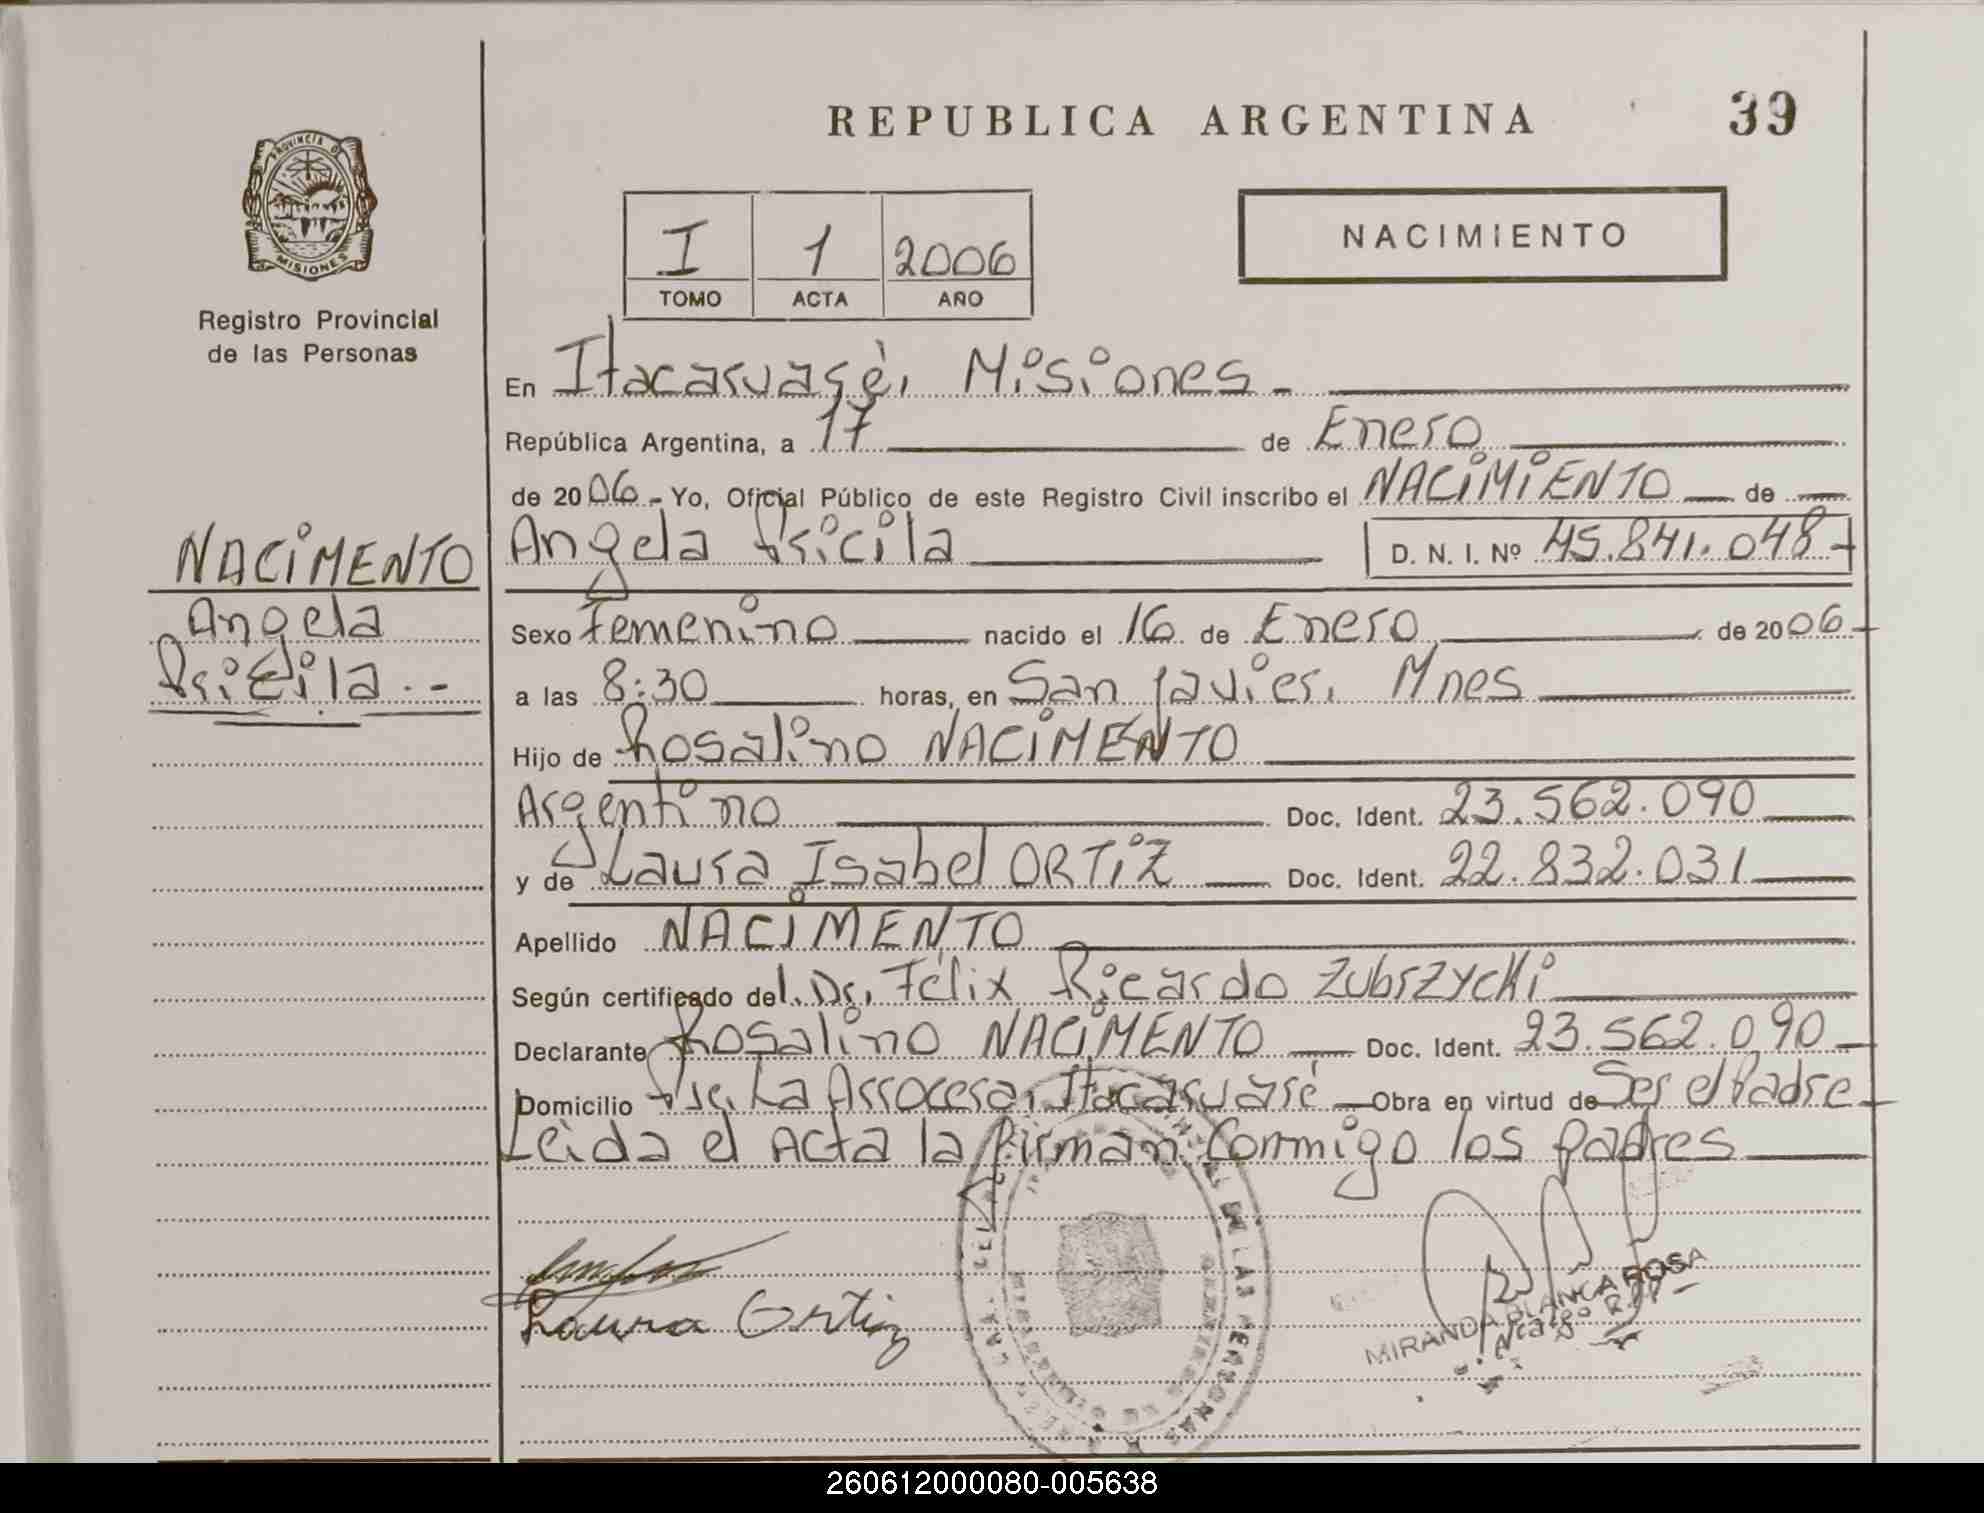 REPUBLICA ARGENTINA
39
PROVINCIA DE
MISIONES
Registro Provincial
de las Personas
I 1 2006
TOMO ACTA AÑO
NACIMIENTO
En Itacaruaré, Misiones -
República Argentina, a 17 de Enero
de 2006.- Yo, Oficial Público de este Registro Civil inscribo el NACIMIENTO de
NACIMENTO
Angela
Pricila.-
Angela Pricila D. N. I. Nº 45.841.048-
Sexo Femenino nacido el 16 de Enero de 2006-
a las 8:30 horas, en San Javier, Mnes
Hijo de Rosalino NACIMENTO
Argentino Doc. Ident. 23.562.090
y de Laura Isabel ORTIZ Doc. Ident. 22.832.031
Apellido NACIMENTO
Según certificado del. Dr. Félix Ricardo Zubrzycki
Declarante Rosalino NACIMENTO Doc. Ident. 23.562.090
Domicilio La Arrocera, Itacaruaré Obra en virtud de Ser el Padre
Leida el Acta la firman Conmigo los padres
Laura Ortiz
MIRANDA BLANCA ROSA
260612000080-005638